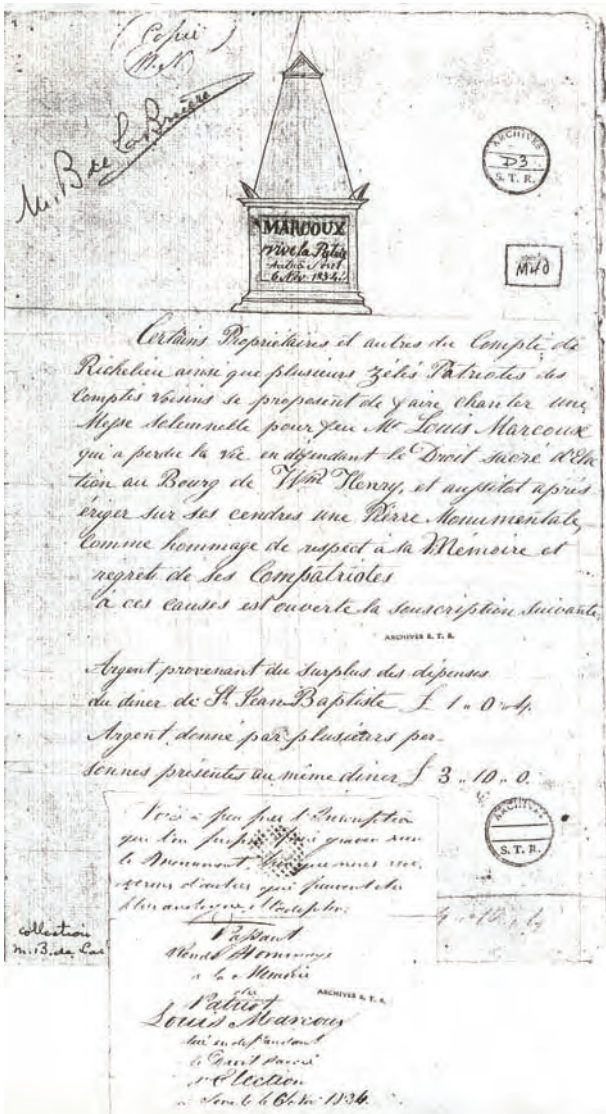 (Copié
M.N.)
M. B de LaBruère
ARCHIVES
D3
S. T. R.
MARCOUX
vive la Patrie
6 Nbr 1834
Certains Propriétaires et autres du Compté de
Richelieu ainsi que plusieurs zélés Patriotes des
Comptés voisins se proposent de faire chanter une
Messe Solemnelle pour feu Mr Louis Marcoux
qui a perdu la vie en défendant le Droit sacré d'Elec
tion au Bourg de Wm Henry, et aussitot après
ériger sur ses cendres une Pierre Monumentale,
Comme hommage de respect à sa Mémoire et
regrets de ses Compatriotes
à ces causes est ouverte la souscription suivante.
ARCHIVES S. T. R.
Argent provenant du surplus des dépenses
du diner de St Jean Baptiste £ 1 „ 0 „ 4.
Argent donné par plusieurs per-
sonnes présentes au même diner £ 3 „ 10 „ 0.
ARCHIVES
S. T. R.
Voici à peu près l'Inscription
que l'on graver sur
le Monument,
d'autres qui peuvent etre
collection
M. B. de La
Passant
Rends Hommage
a la Memoire
du
ARCHIVES S. T. R.
Patriot
Louis Marcoux
tué en defendant
le Droit Sacré
d'Election
a Sorel le 6 Nbr 1834.